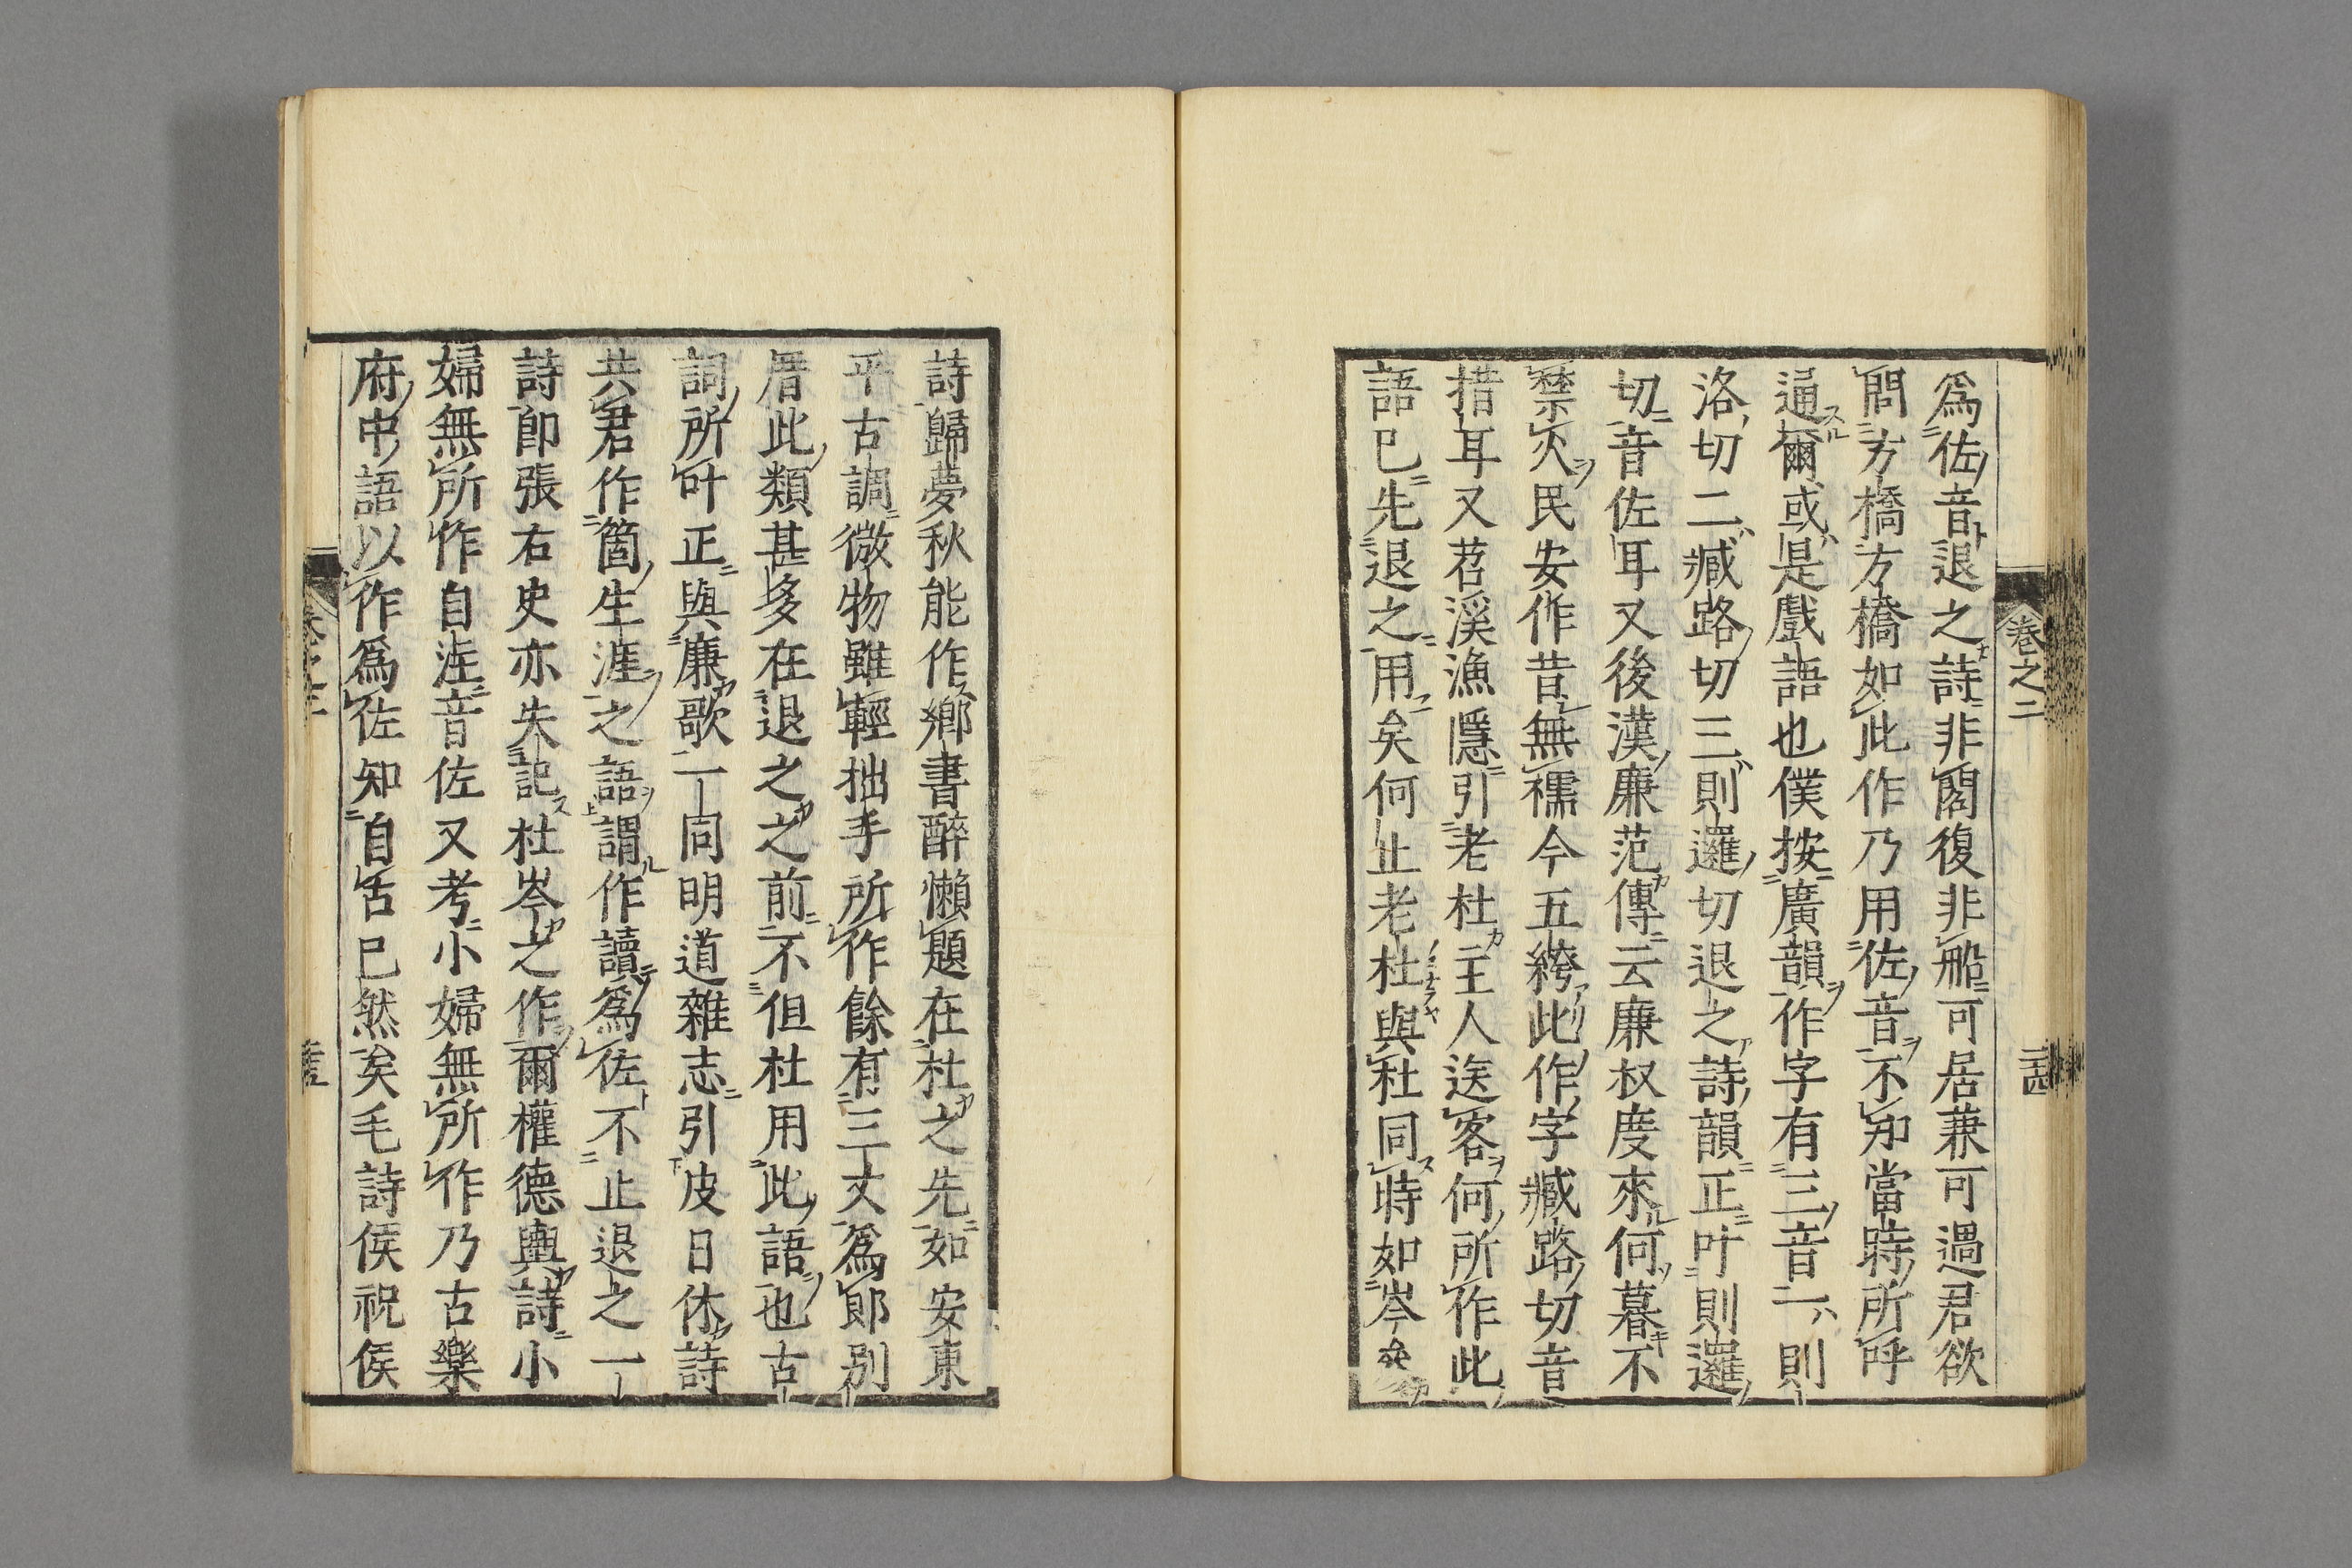 卷之二
爲佐音退之詩非閣復非船可居兼可過君欲
問方橋方橋如此作乃用佐音不知當時所呼
通爾或是戲語也僕按廣韻作字有三音一則
洛切二臧路切三則邏切退之詩韻正叶則邏
切音佐耳又後漢廉范傳云廉叔度來何暮不
禁火民安作昔無襦今五絝此作字臧路切音
措耳又苕溪漁隱引老杜主人送客何所作此
語已先退之用矣何止老杜與杜同時如岑參
詩歸夢秋能作鄉書醉懶題在杜之先如安東
平古調微物雖輕拙手所作餘有三丈爲郎別
厝此類甚多在退之之前不但杜用此語也古
詞所叶正與廉歌一同明道雜志引皮日休詩
共君作箇生涯之語謂作讀爲佐不止退之一
詩卽張右史亦失記杜岑之作爾權德輿詩小
婦無所作自注音佐又考小婦無所作乃古樂
府中語以作爲佐知自古已然矣毛詩侯祝侯